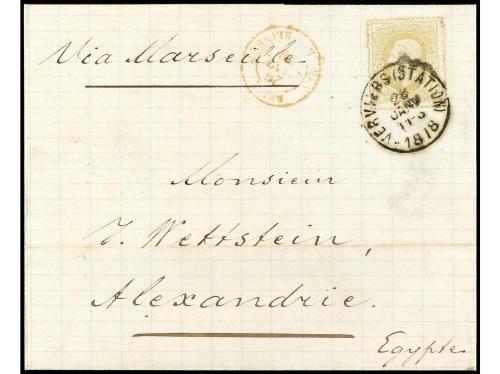 Via Marseille
VERVIERS (STATION)
25
JANV
11-S
1878
Monsieur
J. Wettstein,
Alexandrie.
Egypte